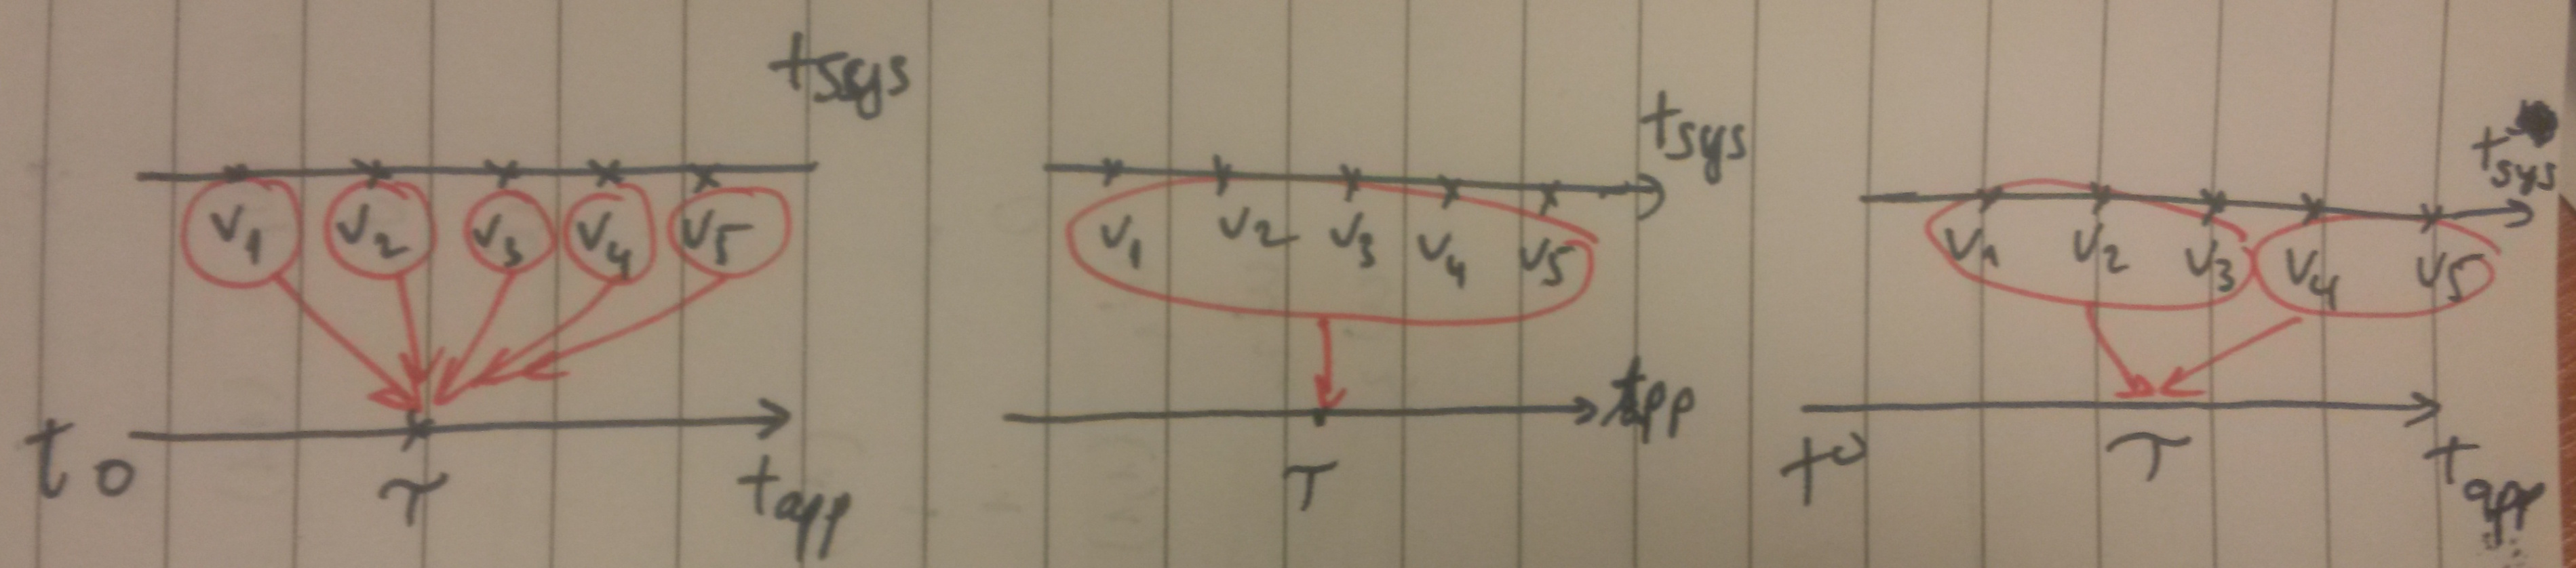 tsys
v1 v2 v3 v4 v5
to
τ
tapp
tsys
v1 v2 v3 v4 v5
tapp
τ
tsys
v1 v2 v3 v4 v5
to
τ
tapp